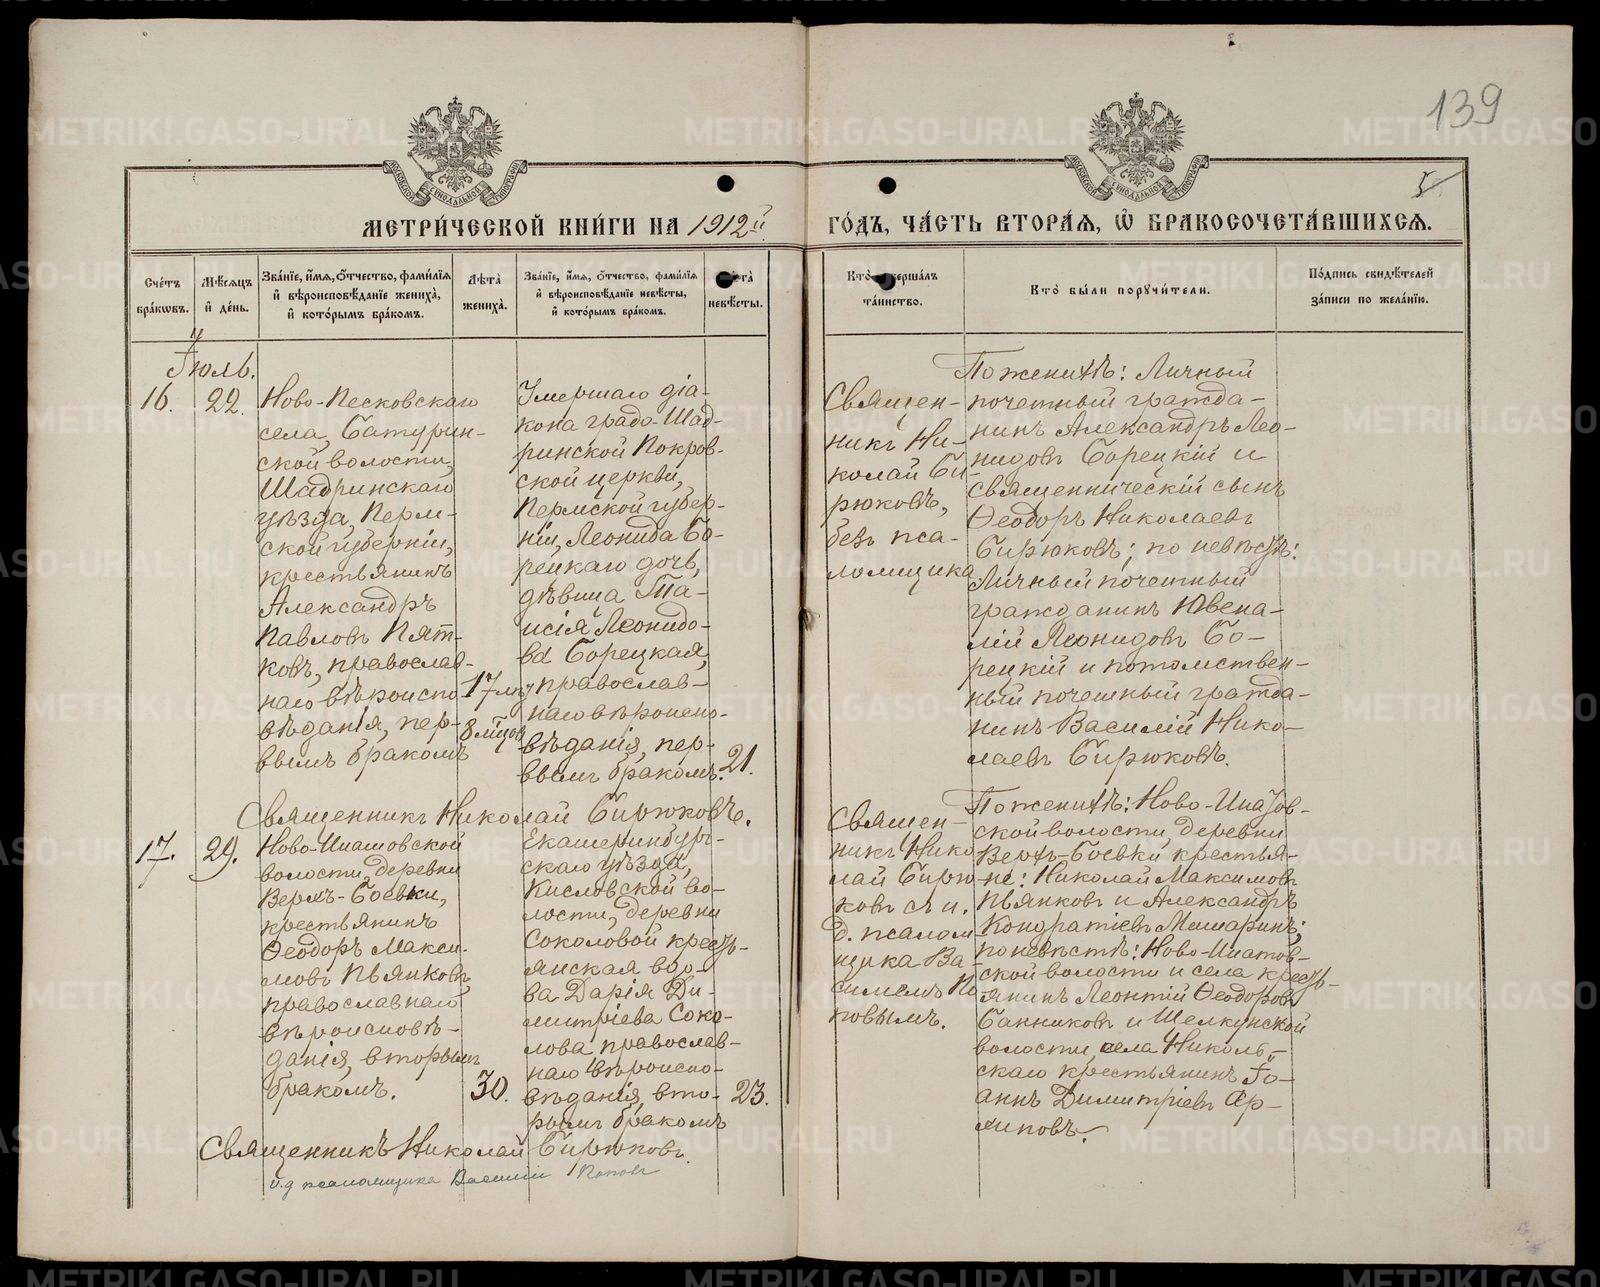 139
5
МОСКОВСКОЙ СУНОДАЛЬНОЙ ТИПОГРАФІИ
МОСКОВСКОЙ СУНОДАЛЬНОЙ ТИПОГРАФІИ
МЕТРИ́ЧЕСКОЙ КНИ́ГИ НА 1912й
ГО́ДЪ, ЧА́СТЬ ВТОРА́Я, Ѡ҆ БРАКОСОЧЕТА́ВШИХСЯ.
Сче́тъ бра́кѡвъ.
Мѣ́сяцъ и҆ де́нь.
Зва́нїе, и҆́мя, ѻ҆́тчество, фами́лїя
и҆ вѣроисповѣ́данїе жениха̀,
и҆ кото́рымъ бра́комъ.
Лѣ́та̀ жениха̀.
Зва́нїе, и҆́мя, ѻ҆́тчество, фами́лїя
и҆ вѣроисповѣ́данїе невѣ́сты,
и҆ кото́рымъ бра́комъ.
невѣ́сты.
Кто̀
та́инство.
Кто̀ бы́ли порꙋчи́тели.
По́дпись свидѣ́телей
за́писи по жела́нїю.
Іюль.
16.
22.
Ново-Песковскаго
села, Батурин-
ской волости,
Шадринскаго
уѣзда, Перм-
ской губерніи,
крестьянинъ
Александръ
Павловъ Пят-
ковъ, православ-
наго вѣроиспо-
вѣданія, пер-
вымъ бракомъ
17 лѣт
8 м͠цов
Умершаго діа-
кона градо-Шад-
ринской Покров-
ской церкви,
Пермской губер-
ніи, Леонида Бо-
рецкаго дочь,
дѣвица Таи-
исія Леонидо-
ва Борецкая,
православ-
наго вѣроиспо-
вѣданія, пер-
вымъ бракомъ.
21.
Священ-
никъ Ни-
колай Би-
рюковъ,
безъ пса-
ломщика
По женихѣ: Личный
почетный гражда-
нинъ Александръ Лео-
нидовъ Борецкій и
священническій сынъ
Ѳеодоръ Николаевъ
Бирюковъ; по невѣстѣ:
Личный почетный
гражданинъ Ювена-
лій Леонидовъ Бо-
рецкій и потомствен-
ный почетный гражда-
нинъ Василій Нико-
лаевъ Бирюковъ.
Священникъ Николай Бирюковъ.
17.
29.
Ново-Ипатовской
волости, деревни
Верхъ-Боевки,
крестьянинъ
Ѳеодоръ Макси-
мовъ Пьянковъ,
православнаго
вѣроисповѣ-
данія, вторымъ
бракомъ.
30.
Екатеринбург-
скаго уѣзда,
Кисловской во-
лости, деревни
Соколовой кресть-
янская вдо-
ва Дарія Ди-
митріева Соко-
лова, православ-
наго вѣроиспо-
вѣданія, вто-
рымъ бракомъ
23.
Священ-
никъ Нико-
лай Бирю-
ковъ съ и.
д. псалом-
щика Ва-
силіемъ По-
повымъ.
По женихѣ: Ново-Ипатов-
ской волости, деревни
Верхъ-Боевки крестья-
не: Николай Максимовъ
Пьянковъ и Александръ
Кондратіевъ Мишаринъ;
по невѣстѣ: Ново-Ипатов-
ской волости и села кресть-
янинъ Леонтій Ѳеодоровъ
Банниковъ и Щелкунской
волости, села Николь-
скаго крестьянинъ Іо-
аннъ Димитріевъ Ар-
хиповъ.
Священникъ Николай Бирюковъ.
и.д псаломщика Василій Поповъ